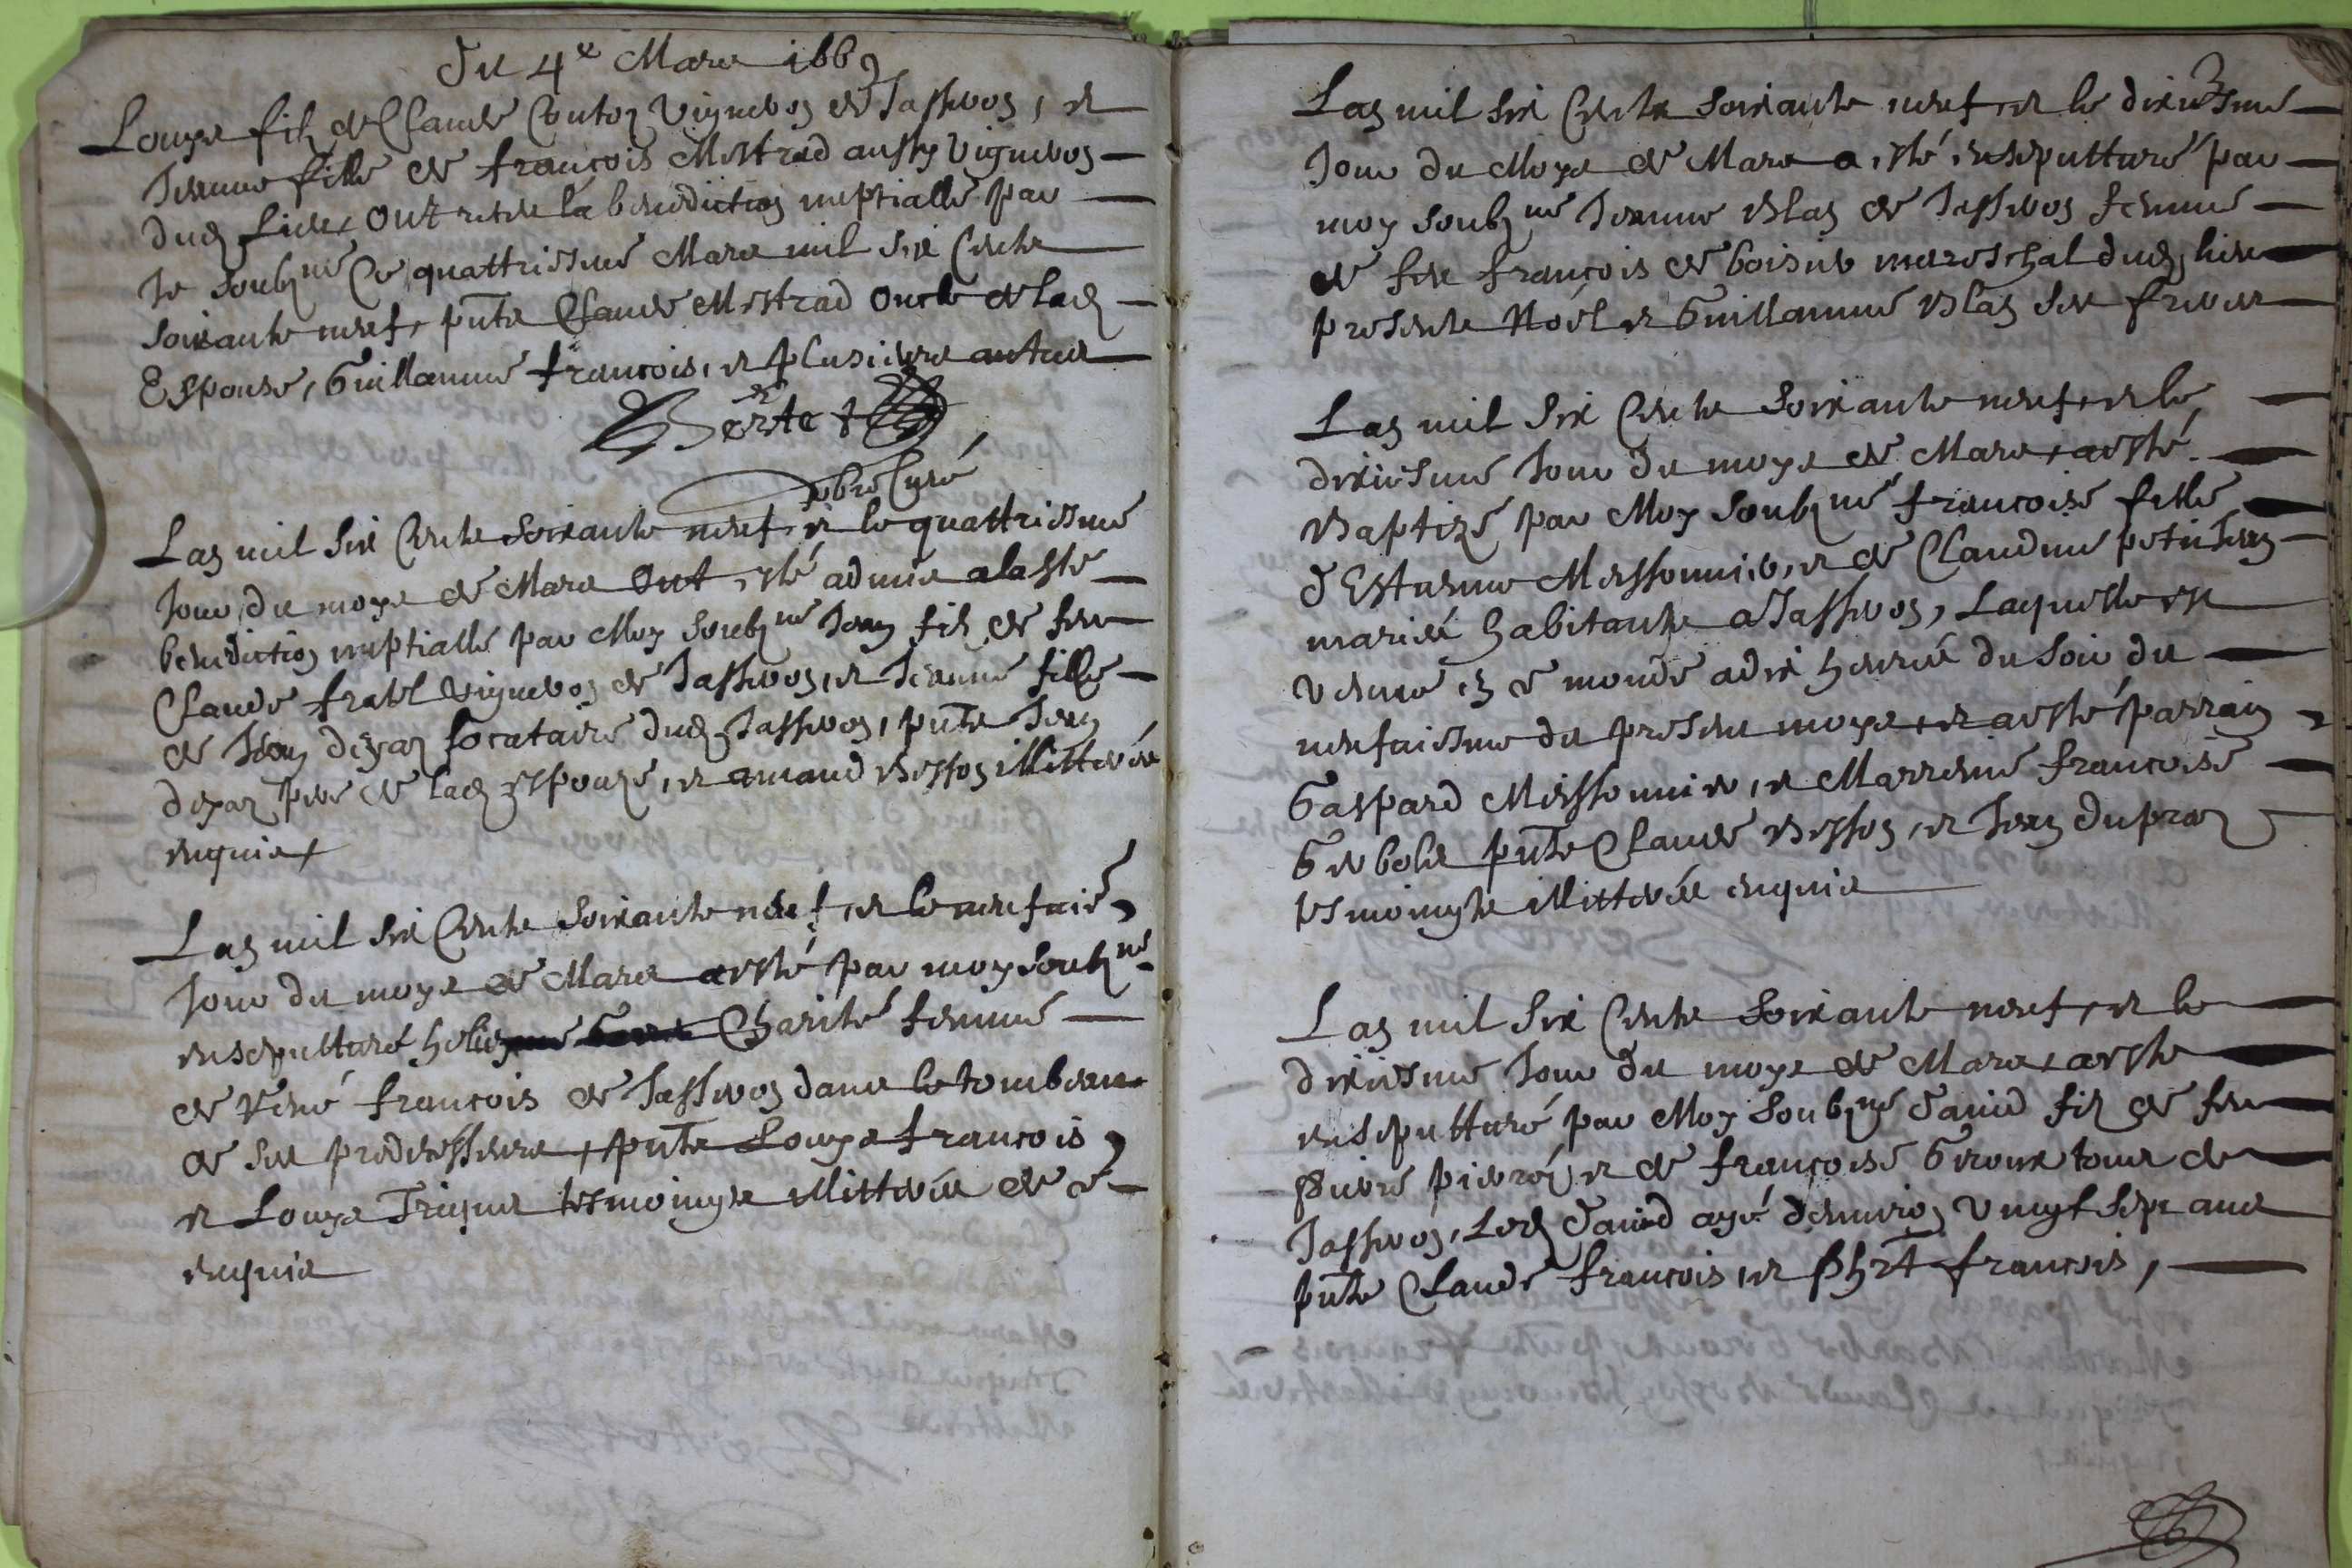 Du 4e Mars 1669
Louys filz de Claude Coutoz vigneron de Tassion, et
Jeanne fille de françois Mestrad aussy vigneron
dud lieu, ont receu la benediction nuptialle par
Je soubzné Ce quattriesme Mars mil six Cents
soixante neuf, pnts Claude Mestrad oncle de lad
Espouse, Guillaume françois, et plusieurs autres
Bertet
pbre Curé
Lan mil six Cents soixante neuf et le quattriesme
Jour du moys de Mars ont esté admis a laste
benediction nuptialle par Moy soubzné Jean filz de feu
Claude vigneron de Tassion, et Jeanne fille
de Jean deyaz locataire dud Tassion, pnts Jean
deyaz pere de lad espouze, et amand Besson illitterés
enquis
Lan mil six Cents soixante neuf, et le neufais
Jour du moys de Mars a esté par moy soubzné
ensepulturé Charité femme
de René françois de Tassion dans le tombeau
de ses predecesseurs, pnts Louys françois,
et Louys Trique tesmoingts illitterés de ce
enquis
Lan mil six Cents soixante neuf, et le dixiesme
Jour du Moys de Mars a esté ensepulturé par
moy soubzné Jeanne Blan de Tassion femme
de feu françois de boisie mareschal dud lieu
presents Noël et Guillaume Blan ses freres
Lan mil six Cents soixante neuf, et le
dixiesme Jour du moys de Mars, a esté
Baptizé par Moy soubzné françoise fille
d'Estienne Meissonnier, et de Claudine petit Jean
mariés habitants a Tassion, Laquelle est
venue en ce monde a dix heures du soir du
neufaisme du present moys, et a esté parrain
Gaspard Meissonnier, et Marreine françoise
Gerbole pnts Claude Besson, et Jean dupraz
tesmoingts illitterés enquis
Lan mil six Cents soixante neuf, et le
dixiesme Jour du moys de Mars, a esté
ensepulturé par Moy soubzné David filz de feu
pierre et de françoise Giroux tous de
Tassion, Led David agé denviron vingt sept ans
pnts Claude françois, et Phrt françois,